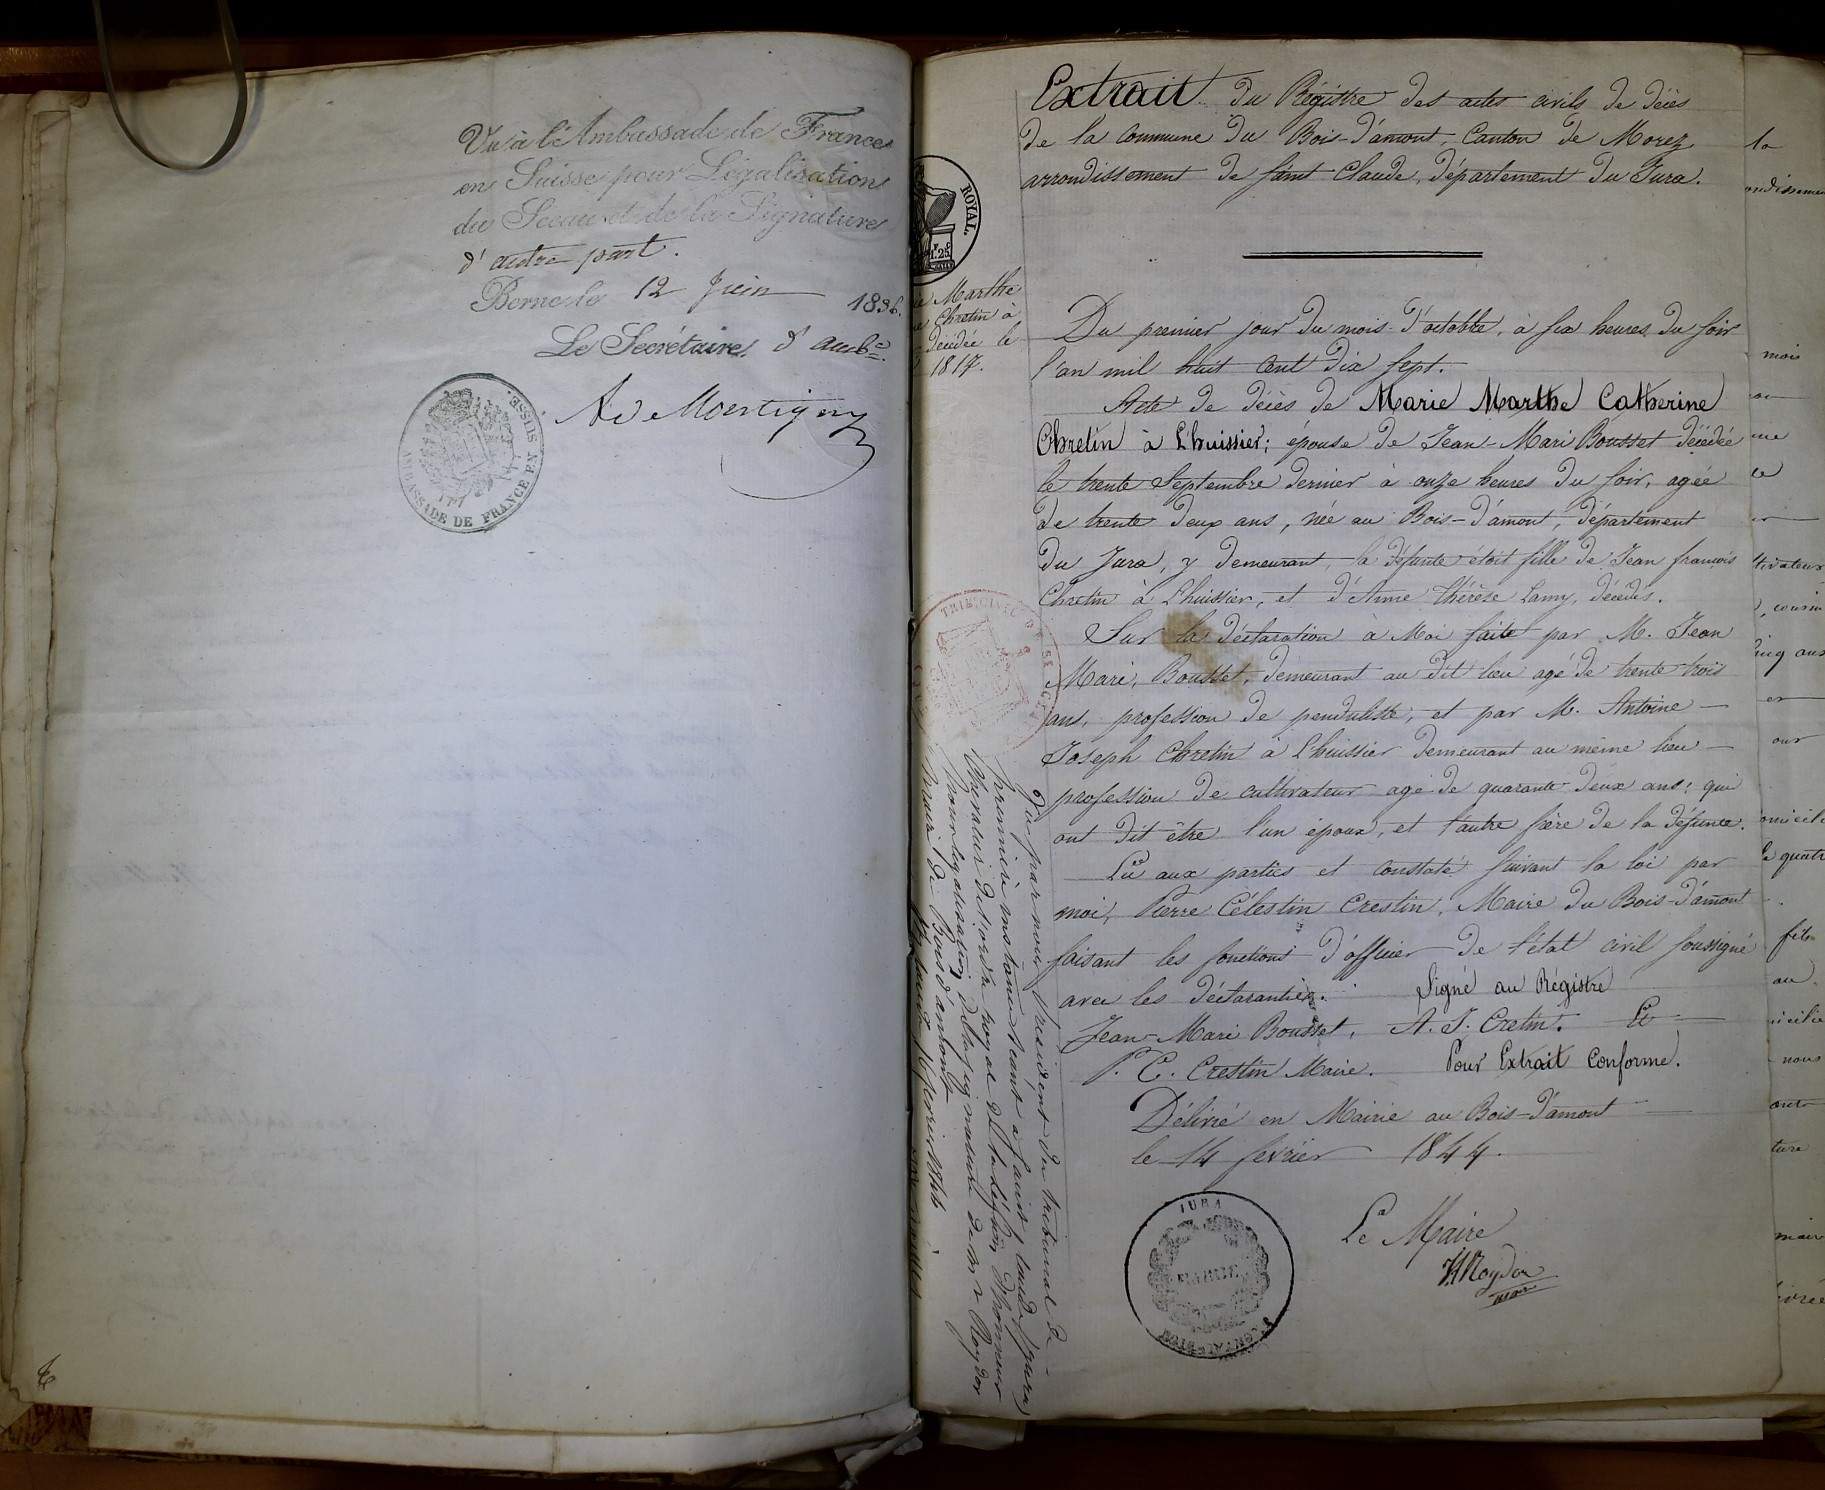 Vu à l'Ambassade de France
en Suisse pour Légalisation
du Sceau et de la Signature
d'autre part.
Berne le 12 Juin 1836.
Le Secrétaire d'amb.e
AMBASSADE DE FRANCE EN SUISSE.
ROYAL.
Marthe
Chretin à
décédée le
1817.
Extrait du Régistre des actes civils de décès
de la Commune du Bois-d'amont, Canton de Morez
arrondissement de saint Claude, département du Jura.
Du premier jour du mois d'octobre, à six heures du soir
l'an mil huit cent dix sept.
Acte de décès de Marie Marthe Catherine
Chretin à Lhuissier; épouse de Jean-Mari Bousset décédée
le trente Septembre dernier à onze heures du soir, agée
de trente deux ans, née au Bois-d'amont, département
du Jura, y demeurant, la défunte étoit fille de Jean françois
Chretin à Lhuissier, et d'Anne thérèse Lamy, décédés.
Sur la déclaration à Moi faite par M. Jean
Mari, Bousset, demeurant au dit lieu agé de trente trois
ans, profession de penduliste, et par M. Antoine
Joseph Chretin à Lhuissier demeurant au même lieu
profession de cultivateur agé de quarante deux ans; qui
ont dit être l'un époux, et l'autre frère de la défunte.
Lu aux parties et constaté suivant la loi par
moi, Pierre Célestin Crestin, Maire du Bois-d'amont
faisant les fonctions d'officier de l'état civil soussigné
avec les déclarantiés. Signé au Régistre
Jean-Mari Bousset, A. J. Cretin. Et
P. C. Crestin Maire. Pour Extrait Conforme.
Délivré en Mairie au Bois-d'amont
le 14 fevrier 1844.
Le Maire
JURA
MAIRIE
Vu par nous président du tribunal de
première instance séant à Saint Claude (Jura)
Chevalier de l'ordre royal de la légion d'honneur
Pour légalisation de la signature de Mr Roydor
Maire de Bois d'amont
la
mois
cousin
cinq ans
er
our
domicile
le quatre
fils
au
nous
ture
maire